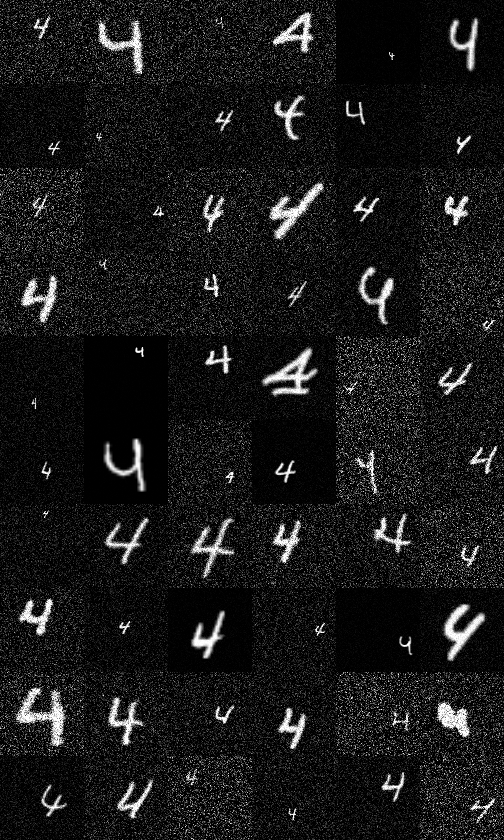 4 4 4 4 4 4
4 4 4 4 4 4
4 4 4 4 4 4
4 4 4 4 4 4
4 4 4 4 4 4
4 4 4 4 4 4
4 4 4 4 4 4
4 4 4 4 4 4
4 4 4 4 4
4 4 4 4 4 4